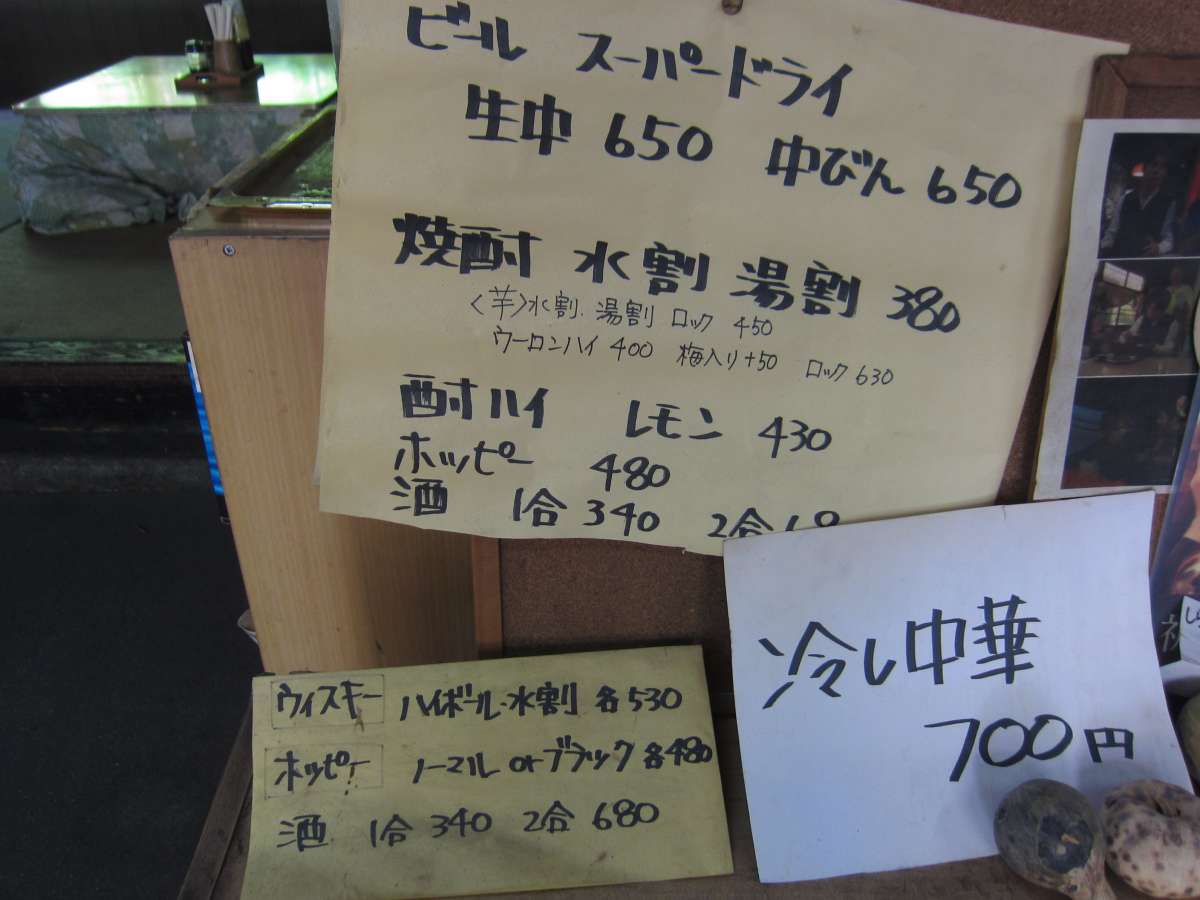 ビール スーパードライ
生中 650 中びん 650
焼酎 水割 湯割 380
〈芋〉水割. 湯割 ロック 450
ウーロンハイ 400 梅入り+50 ロック 630
酎ハイ レモン 430
ホッピー 480
酒 1合 340 2合 68
冷し中華
700円
ウィスキー ハイボール・水割 各530
ホッピー ノーマル or ブラック 各480
酒 1合 340 2合 680